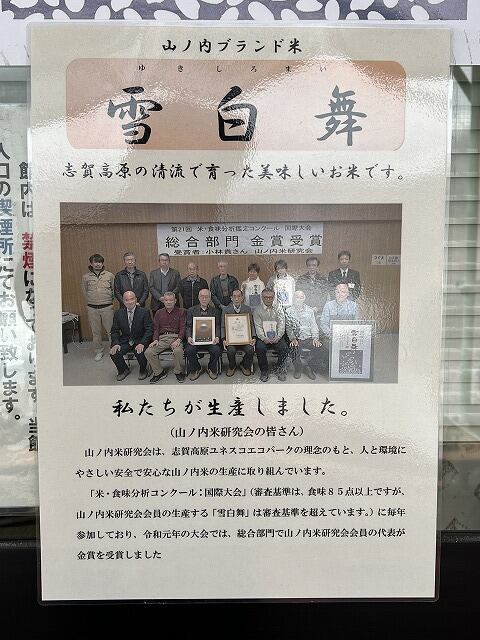 山ノ内ブランド米
ゆきしろまい
雪白舞
志賀高原の清流で育った美味しいお米です。
第21回 米・食味分析鑑定コンクール 国際大会
総合部門 金賞受賞
受賞者:小林貴さん 山ノ内米研究会
雪白舞
私たちが生産しました。
(山ノ内米研究会の皆さん)
山ノ内米研究会は、志賀高原ユネスコエコパークの理念のもと、人と環境に
やさしい安全で安心な山ノ内米の生産に取り組んでいます。
「米・食味分析コンクール:国際大会」(審査基準は、食味85点以上ですが、
山ノ内米研究会会員の生産する「雪白舞」は審査基準を超えています。)に毎年
参加しており、令和元年の大会では、総合部門で山ノ内米研究会会員の代表が
金賞を受賞しました
館内は、禁煙になっております。当館
入口の喫煙所にてお願い致します。